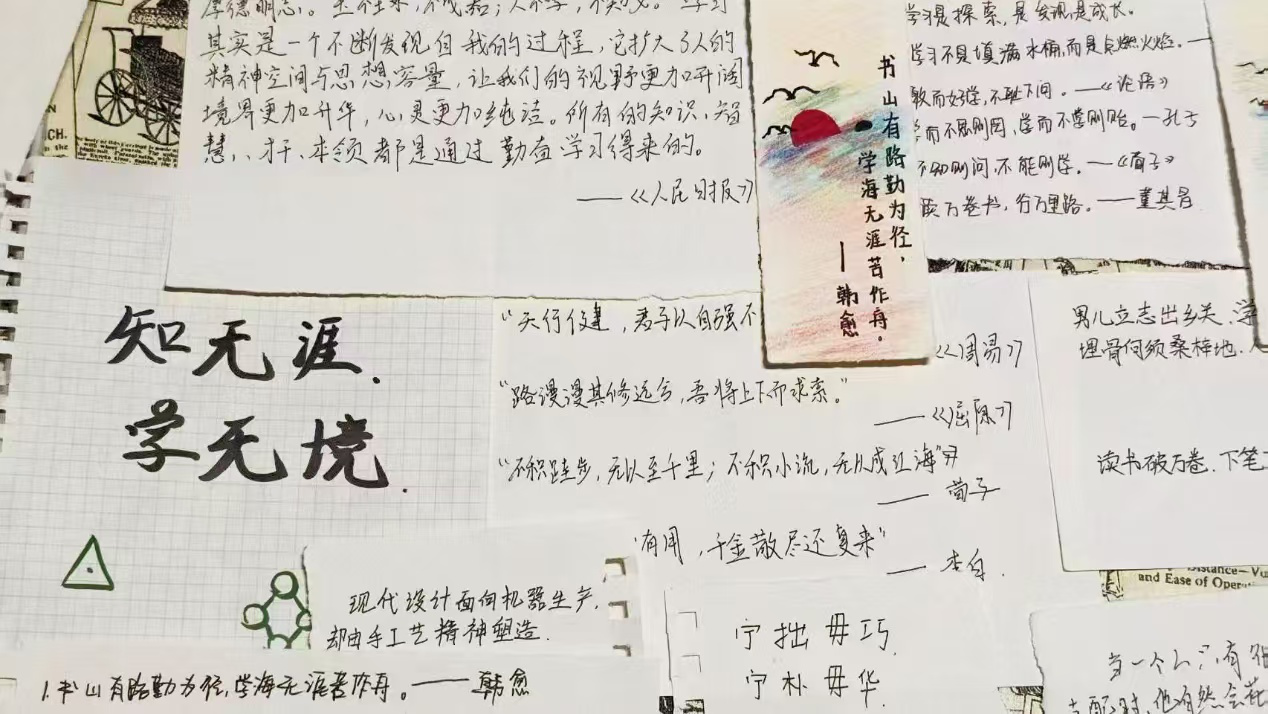 厚德明志。玉在
其实是一个不断发现自我的过程，它扩大了人的
精神空间与思想容量，让我们的视野更加开阔
境界更加升华，心灵更加纯洁。所有的知识、智
慧、才干、本领都是通过勤奋学习得来的。
——《人民日报》
书山有路勤为径，
学海无涯苦作舟。
—韩愈
学习是探索，是发现是成长。
学习不是填满水桶，而是点燃火焰。—
敏而好学，不耻下问。——《论语》
学而不思则罔，思而不学则殆。—孔子
不知则问，不能则学。——《荀子》
读万卷书，行万里路。——董其昌
CH.
知无涯.
学无境.
"天行健，君子以自强不
——《周易》
"路漫漫其修远兮，吾将上下而求索。"
——《屈原》
"不积跬步，无以至千里；不积小流，无以成江海"
——荀子
有用，千金散尽还复来"
——李白.
男儿立志出乡关.学
埋骨何须桑梓地.
读书破万卷.下笔
Distance—
and Ease of Oper
现代设计面向机器生产，
却由手工艺精神塑造.
1.书山有路勤为径，学海无涯苦作舟。——韩愈
宁拙毋巧.
宁朴毋华.
当一个人只有